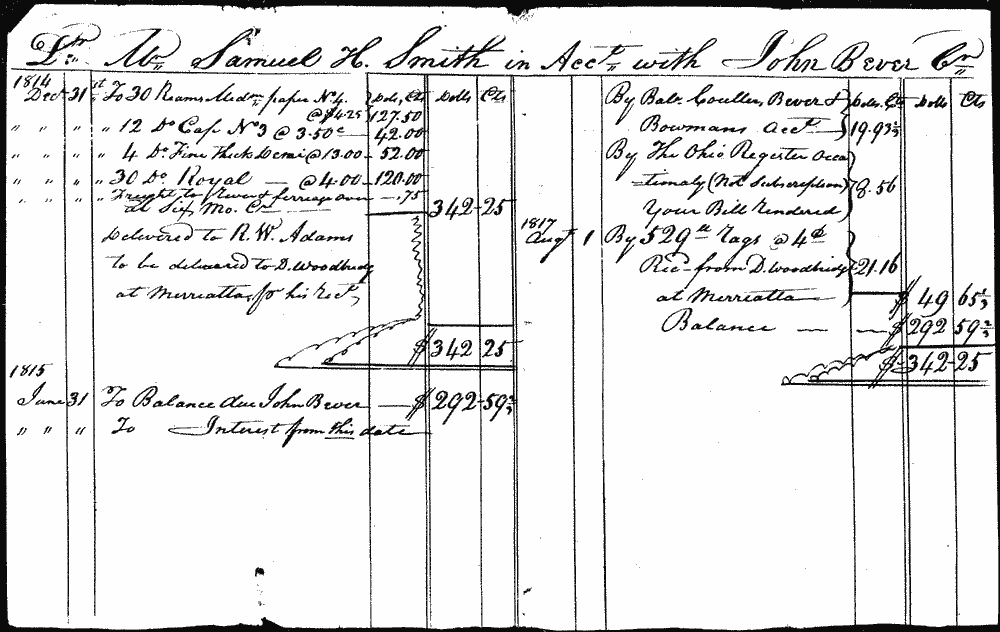 Dr. Mr. Samuel H. Smith in Acct. with John Bever Cr.
1814
Dect 31st To 30 Reams Medm. paper No 4. Dolls, Cts Dolls Cts
@ $4.25 127.50
" " " " 12 Do Cap No 3 @ 3.50c 42.00
" " " " 4 Do. Fine thick Demi @ 13.00 52.00
" " " " 30 Do Royal — @ 4.00 120.00
" " " to River & ferriage over — .75
at Six Mo. Cr 342-25
Delivered to R. W. Adams
to be delivered to D. Woodbridge
at Merriatta, his Rect,
$ 342 25
1815
June 31 To Balance due John Bever — $ 292-59
" " " To Interest from this date
By Balc. Coulter, Bever & Dolls. Cts Dolls Cts
Bowmans acct — 19.93
By The Ohio Register occa
=tionaly (Not Subscription) 8.56
Your Bill Rendered
1817
Augt 1 By 529 lb Rags @ 4
Recd from D. Woodbridge 21.16
at Merriatta
$ 49 65
Balance — — $ 292 59
$ 342-25